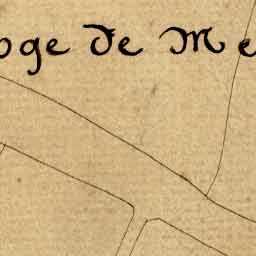 oge de Me